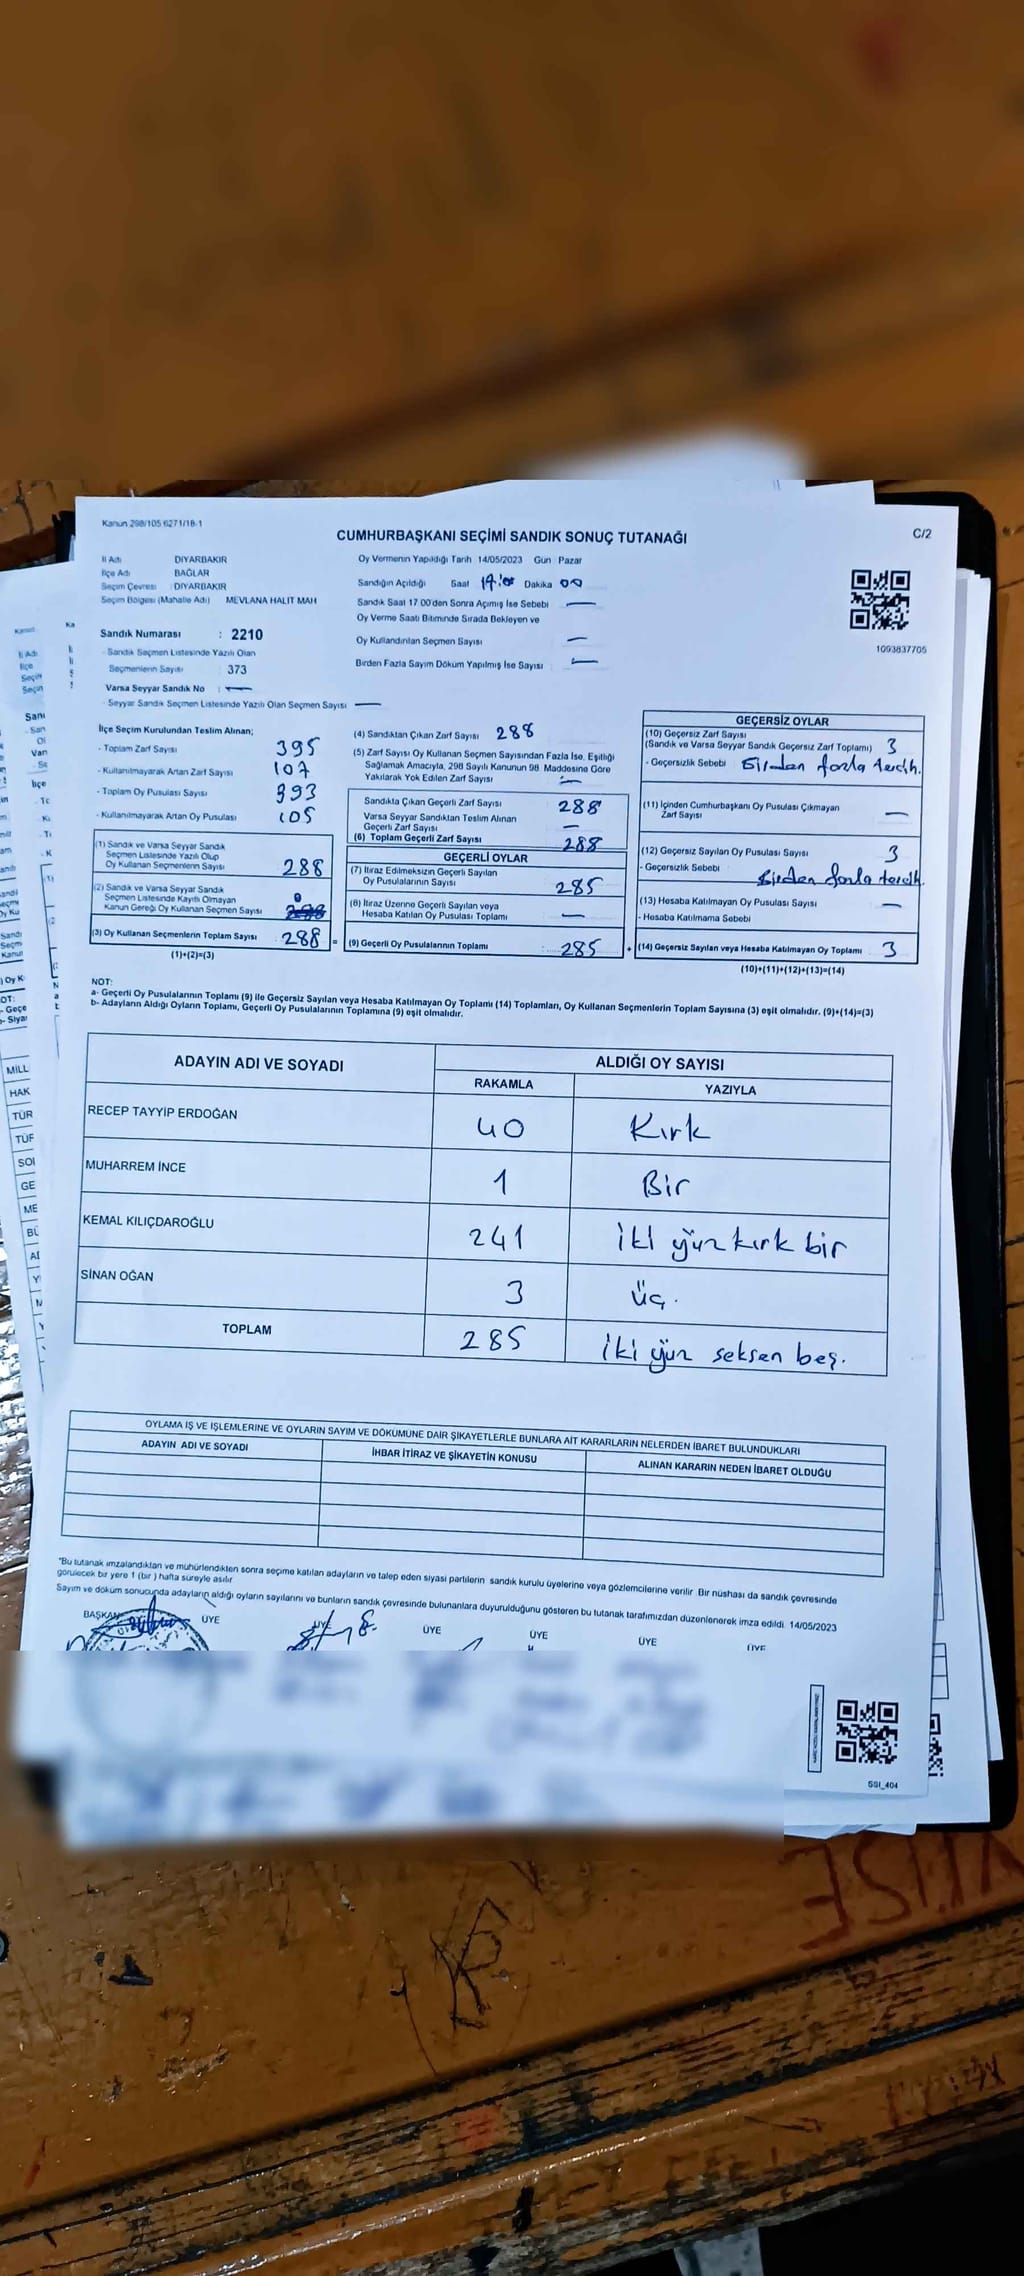 Kanun 298/105 6271/18-1
CUMHURBAŞKANI SEÇİMİ SANDIK SONUÇ TUTANAĞI
C/2
İl Adı DİYARBAKIR
İlçe Adı BAĞLAR
Seçim Çevresi DİYARBAKIR
Seçim Bölgesi (Mahalle Adı) MEVLANA HALİT MAH
Sandık Numarası : 2210
- Sandık Seçmen Listesinde Yazılı Olan
Seçmenlerin Sayısı 373
Varsa Seyyar Sandık No : —
- Seyyar Sandık Seçmen Listesinde Yazılı Olan Seçmen Sayısı —
Oy Vermenin Yapıldığı Tarih 14/05/2023 Gün Pazar
Sandığın Açıldığı Saat Dakika 00
Sandık Saat 17.00'den Sonra Açımış İse Sebebi —
Oy Verme Saati Bitiminde Sırada Bekleyen ve
Oy Kullandırılan Seçmen Sayısı —
Birden Fazla Sayım Döküm Yapılmış İse Sayısı —
1093837705
İlçe Seçim Kurulundan Teslim Alınan;
- Toplam Zarf Sayısı 395
- Kullanılmayarak Artan Zarf Sayısı 107
- Toplam Oy Pusulası Sayısı 393
- Kullanılmayarak Artan Oy Pusulası 105
(1) Sandık ve Varsa Seyyar Sandık
Seçmen Listesinde Yazılı Olup
Oy Kullanan Seçmenlerin Sayısı 288
(2) Sandık ve Varsa Seyyar Sandık
Seçmen Listesinde Kayıtlı Olmayan
Kanun Gereği Oy Kullanan Seçmen Sayısı 0
(3) Oy Kullanan Seçmenlerin Toplam Sayısı 288 =
(1)+(2)=(3)
(4) Sandıktan Çıkan Zarf Sayısı 288
(5) Zarf Sayısı Oy Kullanan Seçmen Sayısından Fazla İse, Eşitliği
Sağlamak Amacıyla, 298 Sayılı Kanunun 98. Maddesine Göre
Yakılarak Yok Edilen Zarf Sayısı —
Sandıkta Çıkan Geçerli Zarf Sayısı 288
Varsa Seyyar Sandıktan Teslim Alınan
Geçerli Zarf Sayısı —
(6) Toplam Geçerli Zarf Sayısı 288
GEÇERLİ OYLAR
(7) İtiraz Edilmeksizin Geçerli Sayılan
Oy Pusulalarının Sayısı 285
(8) İtiraz Üzerine Geçerli Sayılan veya
Hesaba Katılan Oy Pusulası Toplamı —
(9) Geçerli Oy Pusulalarının Toplamı : 285 +
GEÇERSİZ OYLAR
(10) Geçersiz Zarf Sayısı
(Sandık ve Varsa Seyyar Sandık Geçersiz Zarf Toplamı) 3
- Geçersizlik Sebebi Birden fazla tercih.
(11) İçinden Cumhurbaşkanı Oy Pusulası Çıkmayan
Zarf Sayısı —
(12) Geçersiz Sayılan Oy Pusulası Sayısı 3
- Geçersizlik Sebebi Birden fazla tercih.
(13) Hesaba Katılmayan Oy Pusulası Sayısı —
- Hesaba Katılmama Sebebi
(14) Geçersiz Sayılan veya Hesaba Katılmayan Oy Toplamı 3
(10)+(11)+(12)+(13)=(14)
NOT:
a- Geçerli Oy Pusulalarının Toplamı (9) ile Geçersiz Sayılan veya Hesaba Katılmayan Oy Toplamı (14) Toplamları, Oy Kullanan Seçmenlerin Toplam Sayısına (3) eşit olmalıdır. (9)+(14)=(3)
b- Adayların Aldığı Oyların Toplamı, Geçerli Oy Pusulalarının Toplamına (9) eşit olmalıdır.
ADAYIN ADI VE SOYADI
ALDIĞI OY SAYISI
RAKAMLA YAZIYLA
RECEP TAYYİP ERDOĞAN 40 Kırk
MUHARREM İNCE 1 Bir
KEMAL KILIÇDAROĞLU 241 iki yüz kırk bir
SİNAN OĞAN 3 üç.
TOPLAM 285 iki yüz seksen beş.
OYLAMA İŞ VE İŞLEMLERİNE VE OYLARIN SAYIM VE DÖKÜMÜNE DAİR ŞİKAYETLERLE BUNLARA AİT KARARLARIN NELERDEN İBARET BULUNDUKLARI
ADAYIN ADI VE SOYADI İHBAR İTİRAZ VE ŞİKAYETİN KONUSU ALINAN KARARIN NEDEN İBARET OLDUĞU
*Bu tutanak imzalandıktan ve mühürlendikten sonra seçime katılan adayların ve talep eden siyasi partilerin sandık kurulu üyelerine veya gözlemcilerine verilir. Bir nüshası da sandık çevresinde
görülecek bir yere 1 (bir) hafta süreyle asılır
Sayım ve döküm sonucunda adayların aldığı oyların sayılarını ve bunların sandık çevresinde bulunanlara duyurulduğunu gösteren bu tutanak tarafımızdan düzenlenerek imza edildi. 14/05/2023
BAŞKAN ÜYE ÜYE ÜYE ÜYE ÜYE ÜYE
SSI_404